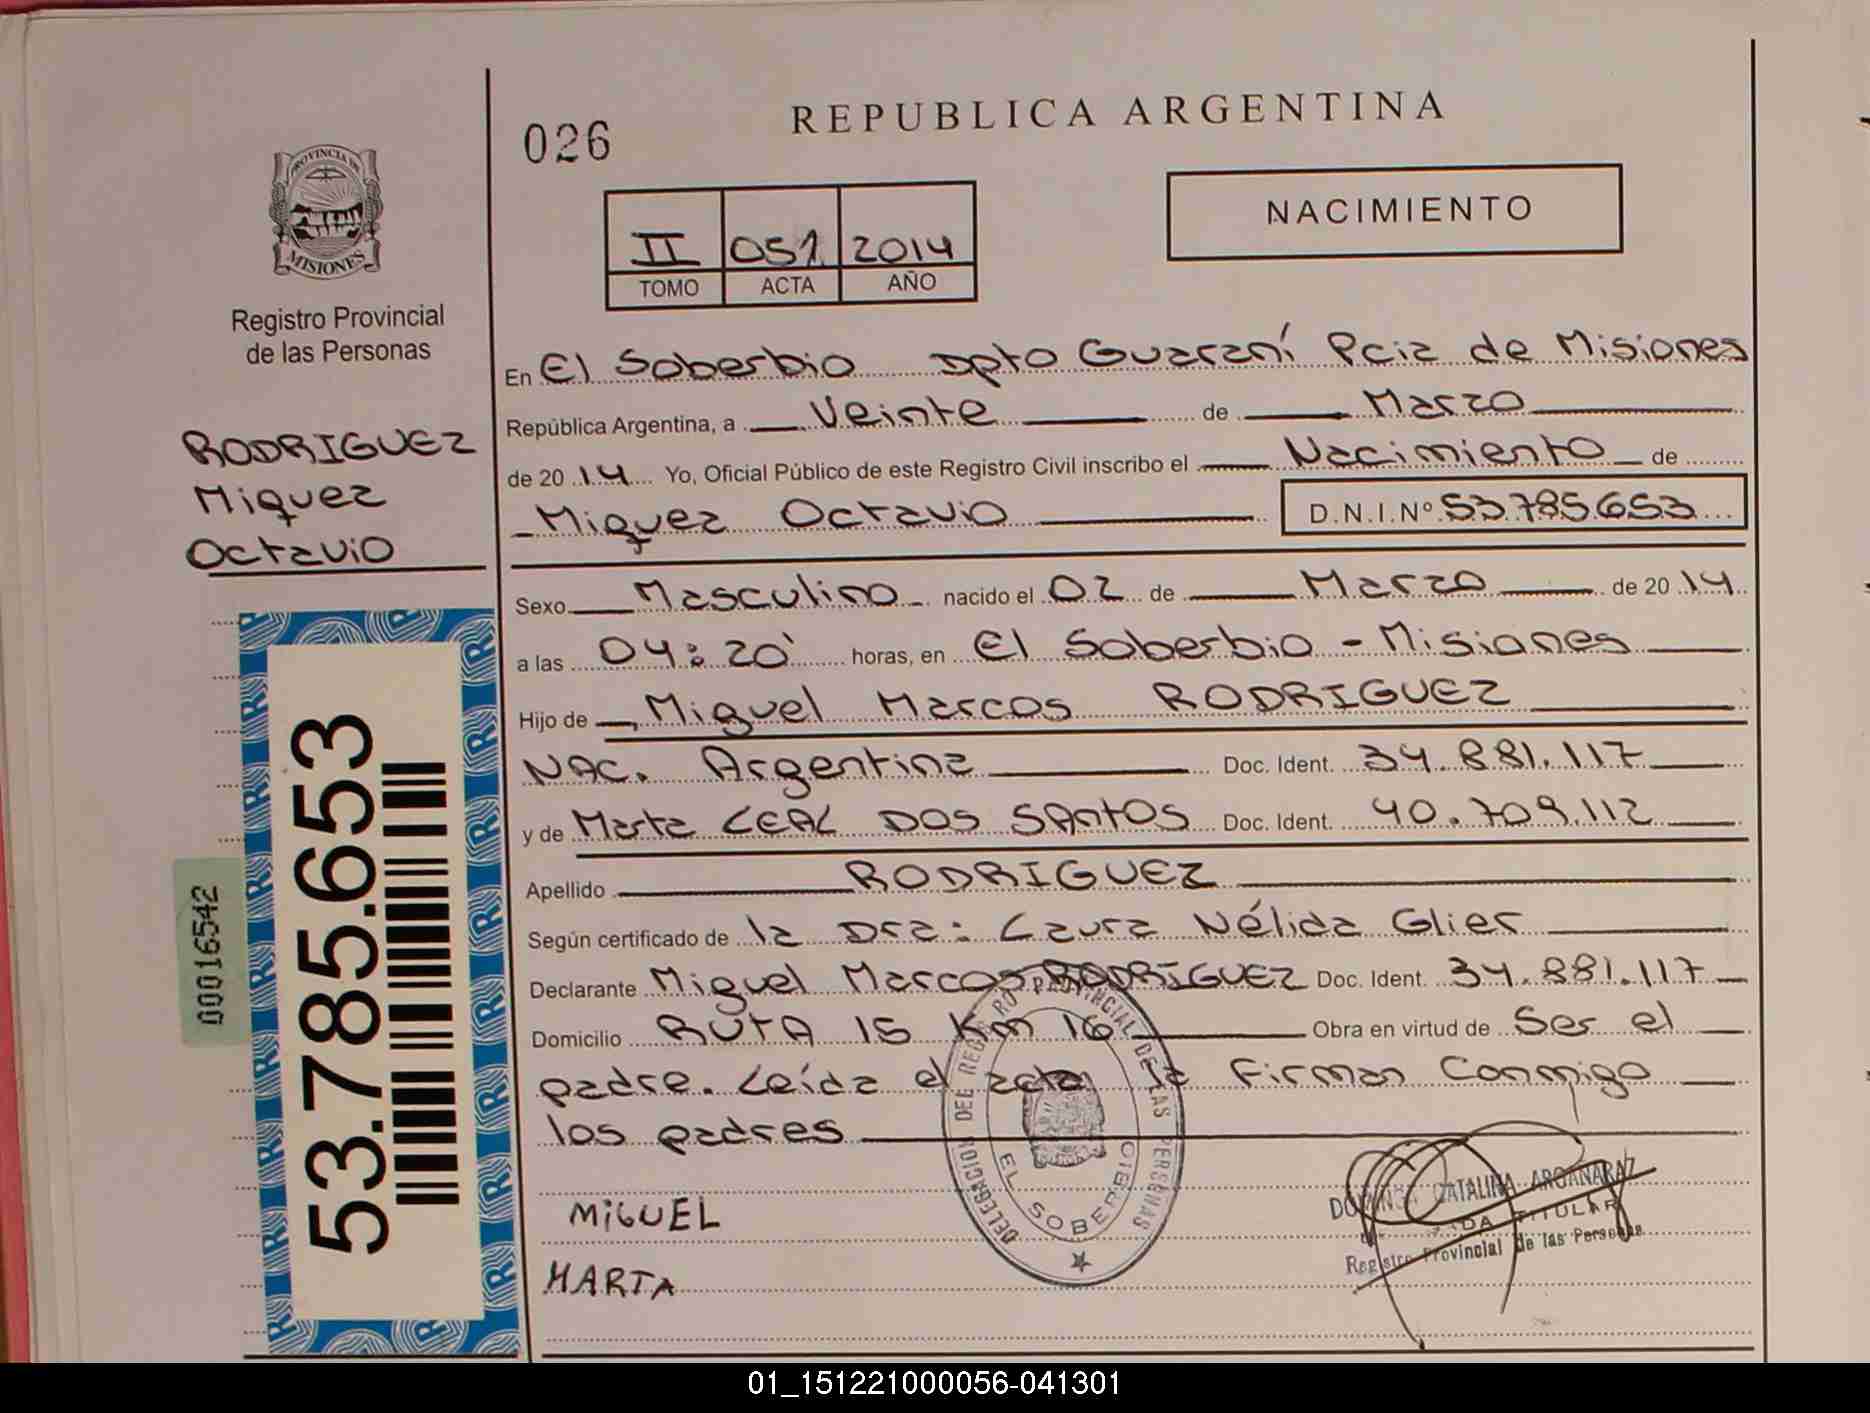 026
REPUBLICA ARGENTINA
PROVINCIA DE
MISIONES
Registro Provincial
de las Personas
II 051 2014
TOMO ACTA AÑO
NACIMIENTO
RODRIGUEZ
Miquez
Octavio
53.785.653
00016542
En El Soberbio Dpto Guaraní Pcia de Misiones
República Argentina, a Veinte de Marzo
de 2014 Yo, Oficial Público de este Registro Civil inscribo el Nacimiento de
Miquez Octavio D.N.I.Nº 53.785.653
Sexo Masculino nacido el 02 de Marzo de 2014
a las 04:20' horas, en El Soberbio - Misiones
Hijo de Miguel Marcos RODRIGUEZ
NAC. Argentina Doc. Ident. 34.881.117
y de Marta LEAL DOS SANTOS Doc. Ident. 40.709.112
Apellido RODRIGUEZ
Según certificado de la Dra: Laura Nélida Glier
Declarante Miguel Marcos RODRIGUEZ Doc. Ident. 34.881.117
Domicilio RUTA 15 Km 16 Obra en virtud de Ser el
padre. Leída el acta la Firman Conmigo
los padres
DELEGACION DEL REGISTRO PROVINCIAL DE LAS PERSONAS
EL SOBERBIO
MIGUEL
MARTA
CATALINA ARGAÑARAZ
TITULAR
Registro Provincial de las Personas
01_151221000056-041301